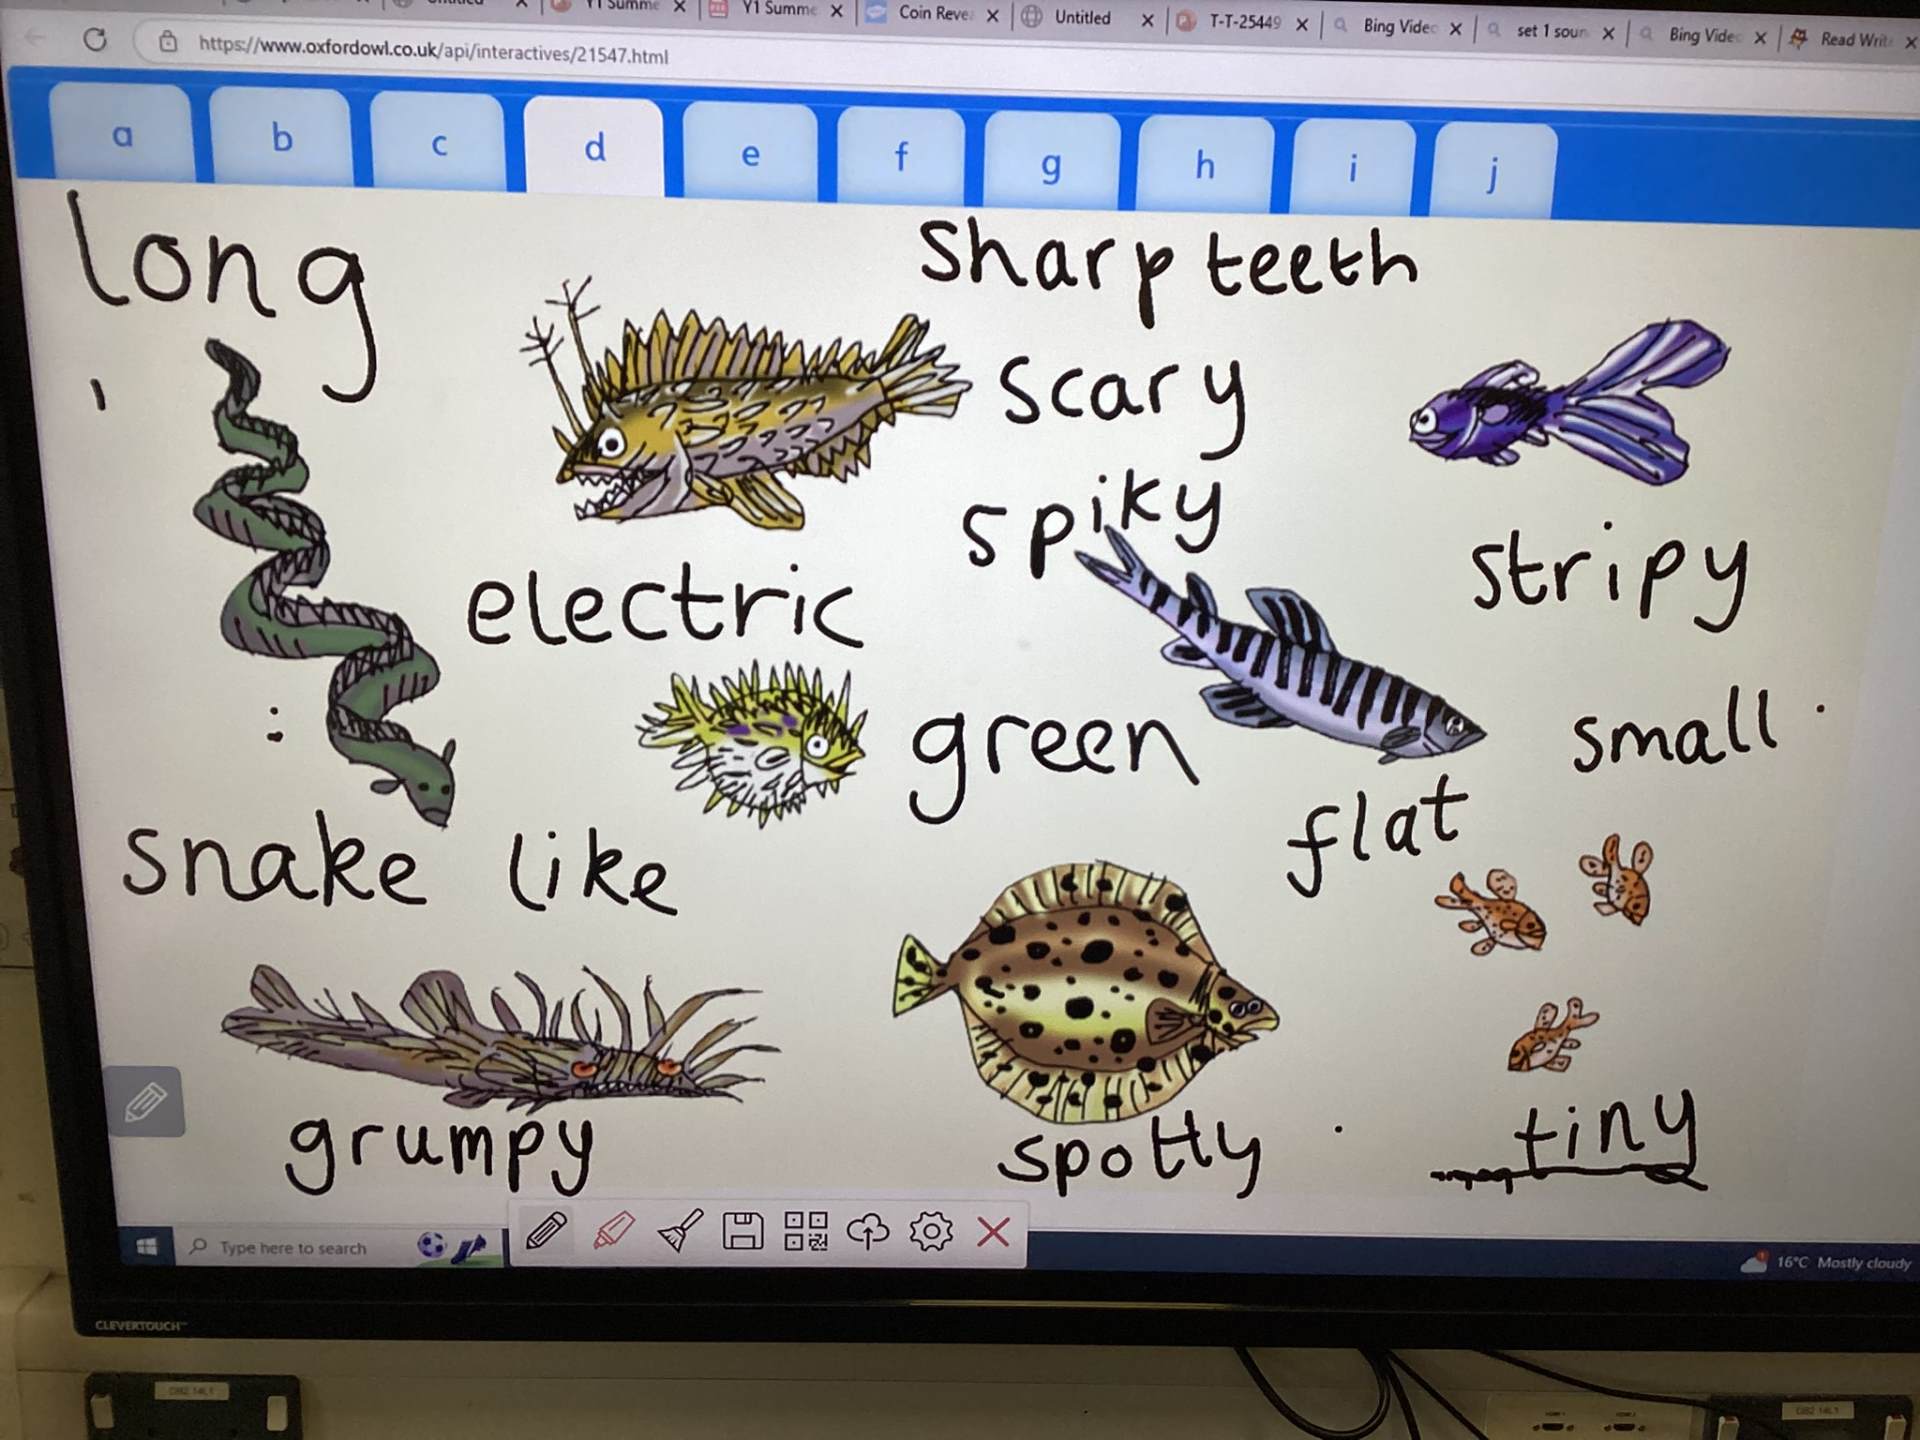 Untitled
Y1 Summe
Y1 Summe
Coin Revea
Untitled
T-T-25449
Bing Video
set 1 soun
Bing Video
Read Writ
https://www.oxfordowl.co.uk/api/interactives/21547.html
a b c d e f g h i j
long
sharp teeth
scary
spiky
stripy
electric
green
small
flat
snake like
grumpy
spotty
tiny
Type here to search
16°C Mostly cloudy
CLEVERTOUCH